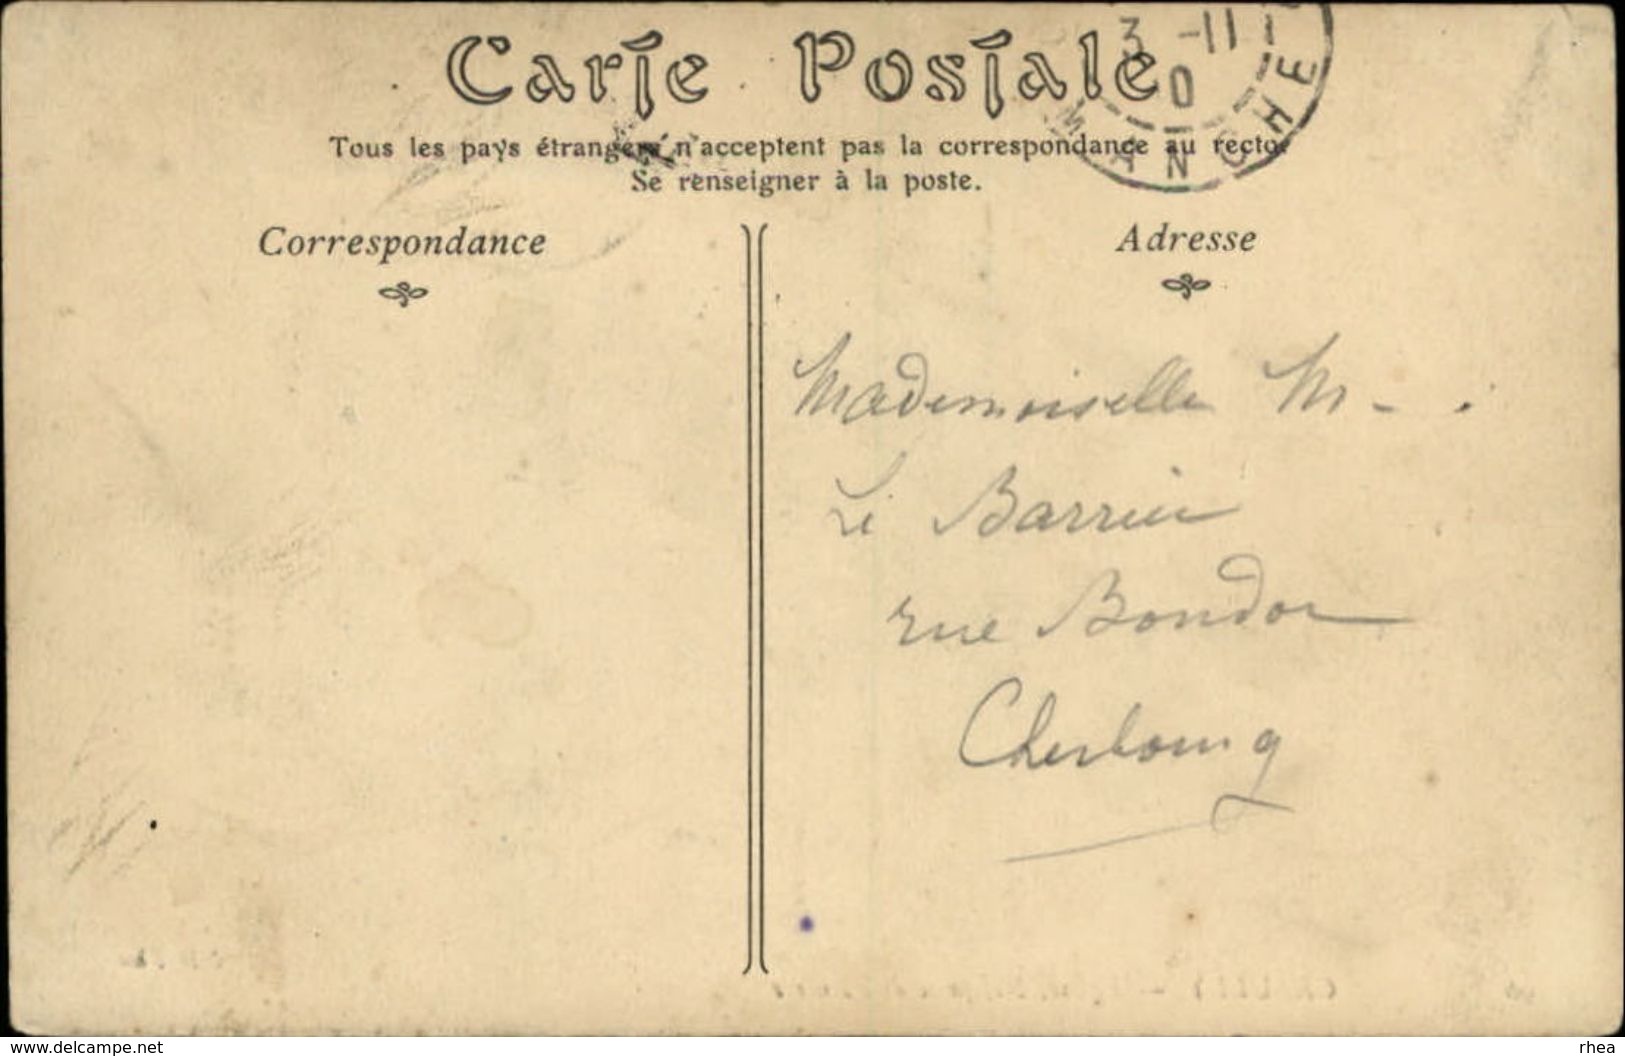 Carte Postale
3 -11
0
MANCHE
Tous les pays étrangers n'acceptent pas la correspondance au recto.
Se renseigner à la poste.
Correspondance
Adresse
Mademoiselle M - .
Le Barrier
rue Bondor
Cherbourg
www.delcampe.net
rhea